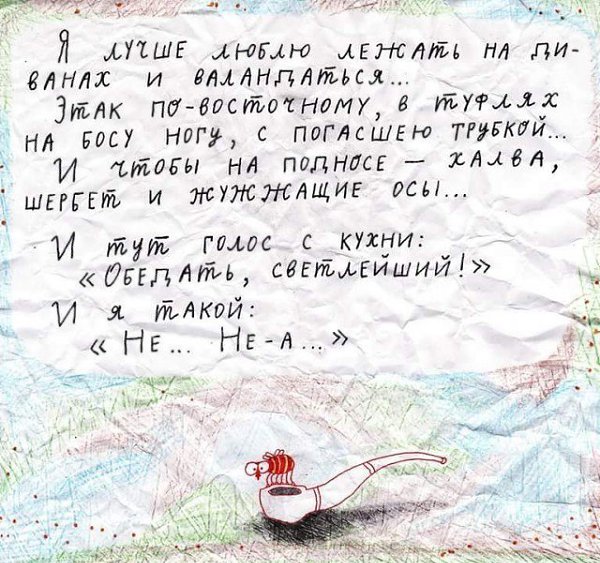 Я лучше люблю лежать на ди-
ванах и валандаться...
Этак по-восточному, в туфлях
на босу ногу, с погасшею трубкой...
И чтобы на подносе — халва,
шербет и жужжащие осы...
И тут голос с кухни:
«Обедать, светлейший!»
И я такой:
«Не... Не-а...»